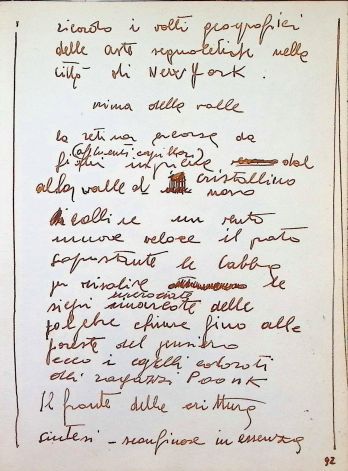 ricordo i volti geografici
delle arte segnaletiche nella
città di New York.
rima della valle
la retina percorsa da
(affluenti capillari)
fiumi impreci dal
alla valle di cristallino
nero
un vento
muove veloce il prato
soprastante le labbra
per risalire le
incrociate
siepi delle
palpebre chiuse fino alle
foreste del pensiero
ecco i capelli colorati
dei ragazzi Poonk
Il fronte delle scritture
sintesi - in essenza
92